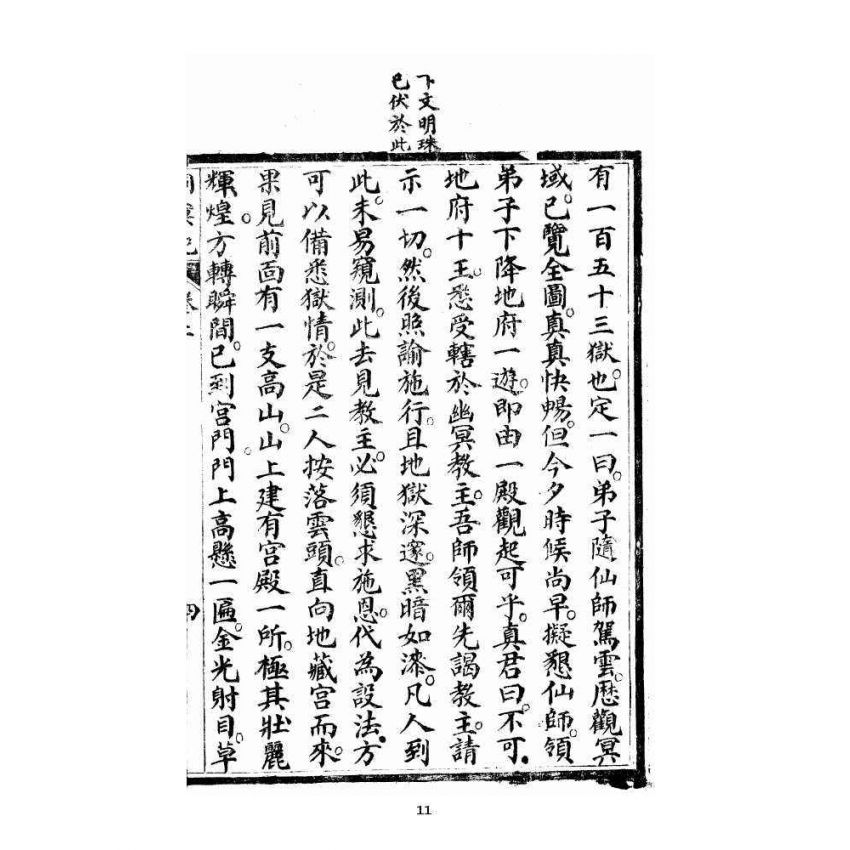 下文明珠
已伏於此
有一百五十三獄也。定一曰。弟子隨仙師駕雲。歷觀冥
域。已覽全圖。真真快暢。但今夕時候尚早。擬懇仙師。領
弟子下降地府一遊。即由一殿觀起可乎。真君曰。不可。
地府十王。悉受轄於幽冥教主。吾師領爾先謁教主。請
示一切。然後照諭施行。且地獄深邃。黑暗如漆。凡人到
此。未易窺測。此去見教主。必須懇求施恩。代為設法。方
可以備悉獄情。於是二人按落雲頭。直向地藏宮而來。
果見前面有一支高山。山上建有宮殿一所。極其壯麗
輝煌。方轉瞬間。已到宮門。門上高懸一匾。金光射目。草
冥記 卷二 四
11